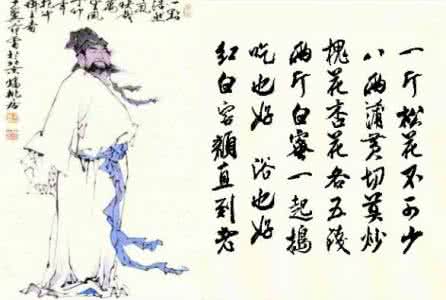 一斤松花不可少
八两蒲黄切莫炒
槐花杏花各五钱
两斤白蜜一起搗
吃也好 浴也好
红白容颜直到老